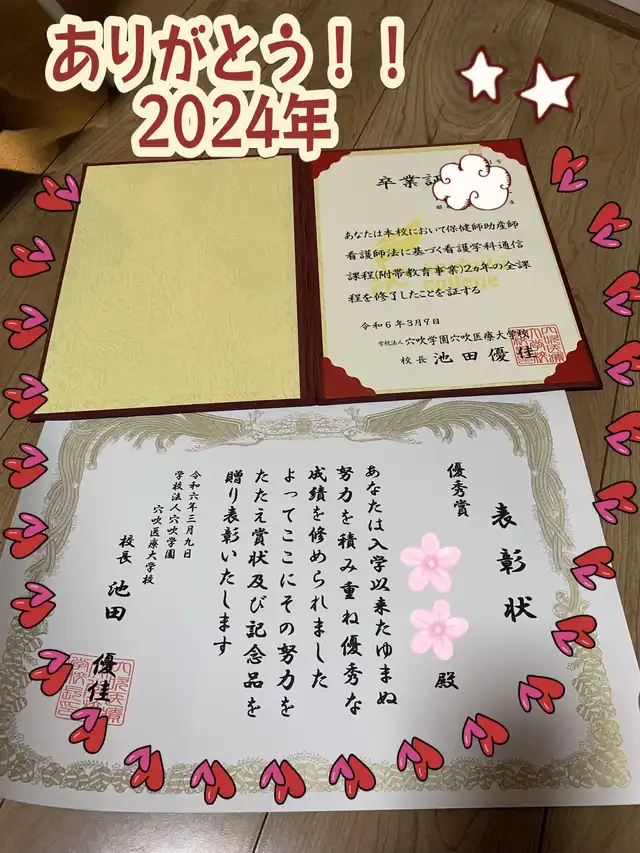 ありがとう！！
2024年
卒業証
あなたは本校において保健師助産師
看護師法に基づく看護学科通信
課程(附帯教育事業)2ヵ年の全課
程を修了したことを証する
令和6年3月9日
学校法人 穴吹学園穴吹医療大学校
校長 池田優佳
college
表彰状
優秀賞
殿
あなたは入学以来たゆまぬ
努力を積み重ね優秀な
成績を修められました
よってここにその努力を
たたえ賞状及び記念品を
贈り表彰いたします
令和六年三月九日
学校法人穴吹学園
穴吹医療大学校
校長 池田優佳